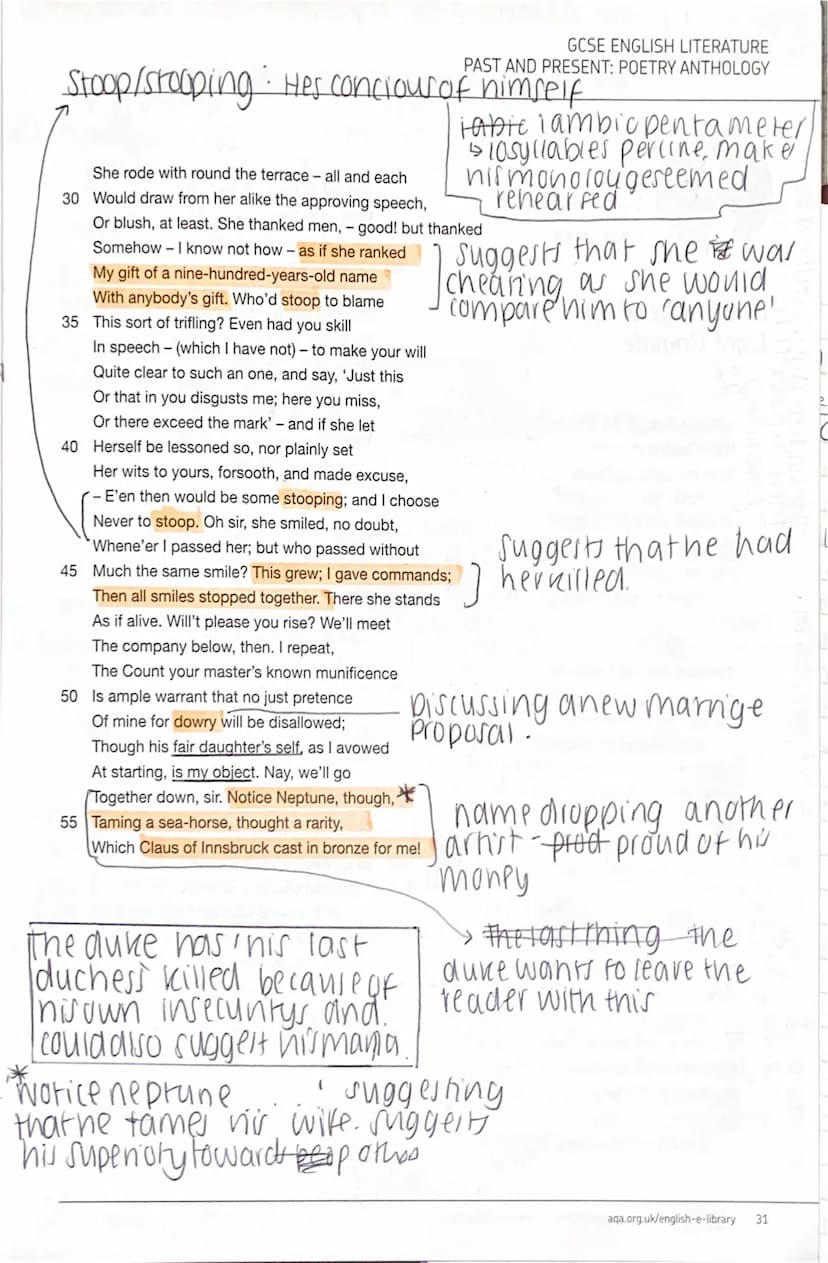 GCSE ENGLISH LITERATURE
PAST AND PRESENT: POETRY ANTHOLOGY
Stoop/stooping : Hes conciousof himself
iabic iambic pentameter
↳ 10syllables perline, make
his monolouge seemed
rehearsed
She rode with round the terrace – all and each
30 Would draw from her alike the approving speech,
Or blush, at least. She thanked men, – good! but thanked
Somehow – I know not how – as if she ranked
My gift of a nine-hundred-years-old name
With anybody's gift. Who'd stoop to blame
suggests that she was
chearing as she would
compare him to 'anyone'
35 This sort of trifling? Even had you skill
In speech – (which I have not) – to make your will
Quite clear to such an one, and say, 'Just this
Or that in you disgusts me; here you miss,
Or there exceed the mark' – and if she let
40 Herself be lessoned so, nor plainly set
Her wits to yours, forsooth, and made excuse,
– E'en then would be some stooping; and I choose
Never to stoop. Oh sir, she smiled, no doubt,
Whene'er I passed her; but who passed without
45 Much the same smile? This grew; I gave commands;
Then all smiles stopped together. There she stands
suggests that he had
her killed.
As if alive. Will't please you rise? We'll meet
The company below, then. I repeat,
The Count your master's known munificence
50 Is ample warrant that no just pretence
Of mine for dowry will be disallowed;
Though his fair daughter's self, as I avowed
At starting, is my object. Nay, we'll go
Discussing a new marrige
proposal.
Together down, sir. Notice Neptune, though, *
55 Taming a sea-horse, thought a rarity,
Which Claus of Innsbruck cast in bronze for me!
name dropping another
artist - prod proud of his
money
The last thing the
duke wants to leave the
reader with this
The duke has 'his last
duchess' killed because of
his own insecuritys and
could also suggest his mania.
*
Notice neptune . . . ' suggesting
that he tames his wife. suggests
his superioty toward others
aqa.org.uk/english-e-library 31